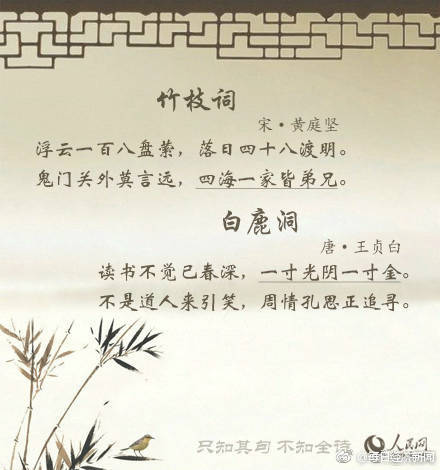 竹枝词
宋·黄庭坚
浮云一百八盘萦，落日四十八渡明。
鬼门关外莫言远，四海一家皆弟兄。
白鹿洞
唐·王贞白
读书不觉已春深，一寸光阴一寸金。
不是道人来引笑，周情孔思正追寻。
只知其句 不知全诗
人民网
@每日经济新闻